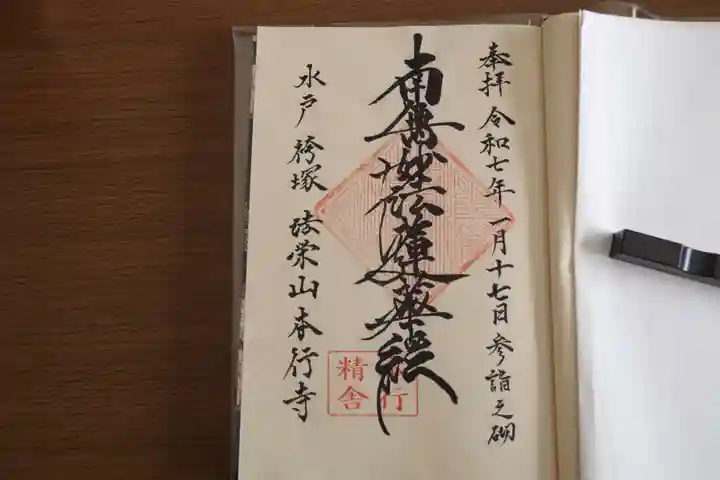 奉拝 令和七年 一月十七日 参詣之砌
南無妙法蓮華経
水戸 袴塚 法栄山本行寺
行
精舎